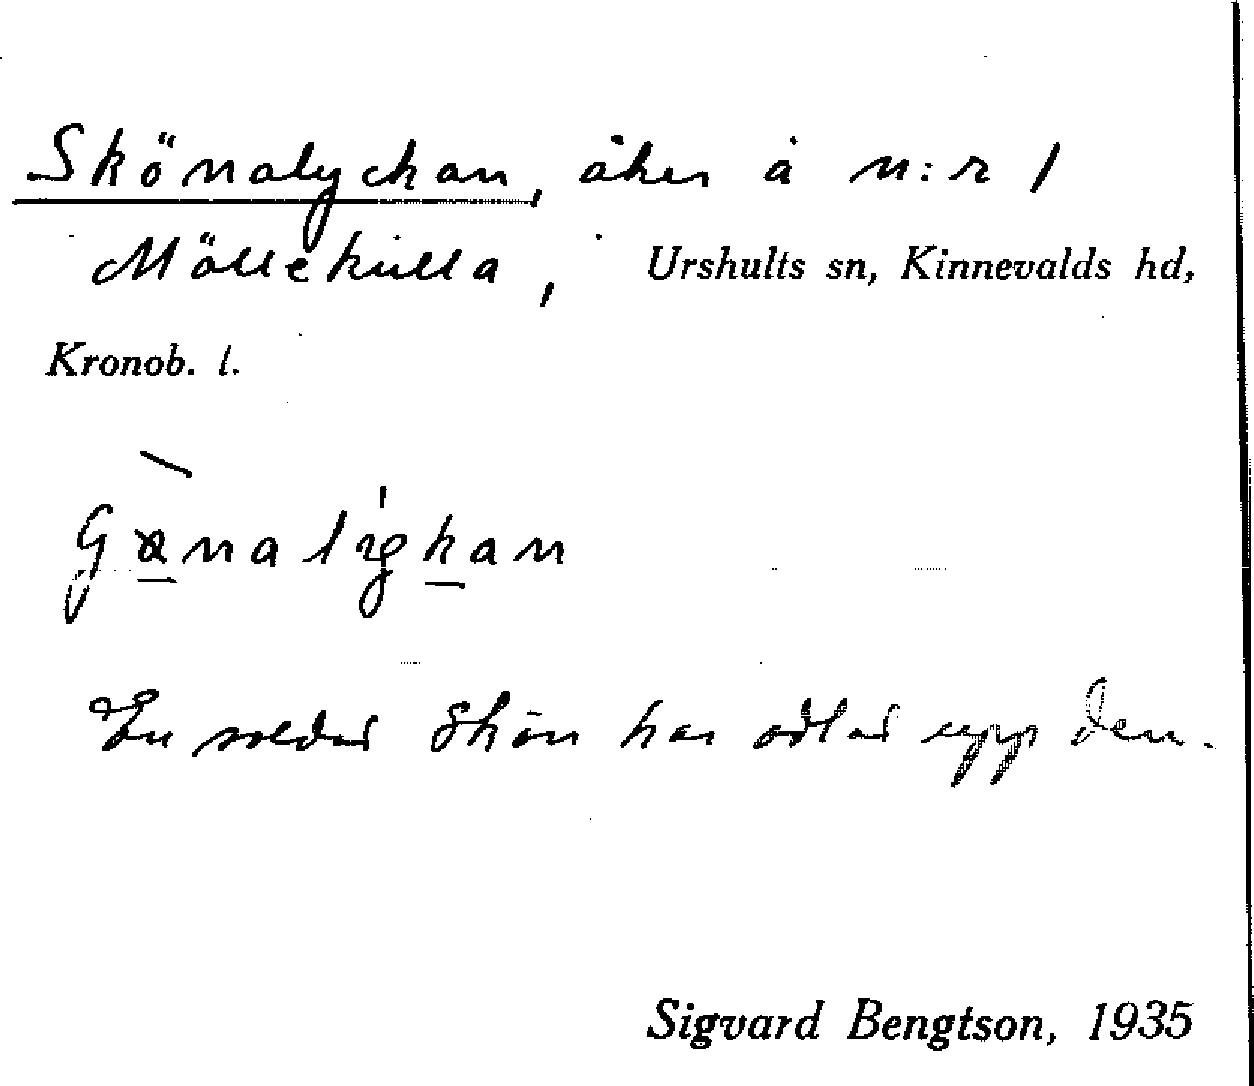 Skönalyckan, åker å n:r 1
Möllekulla, Urshults sn, Kinnevalds hd,
Kronob. l.
En soldat Skön har odlat upp den.
Sigvard Bengtson, 1935